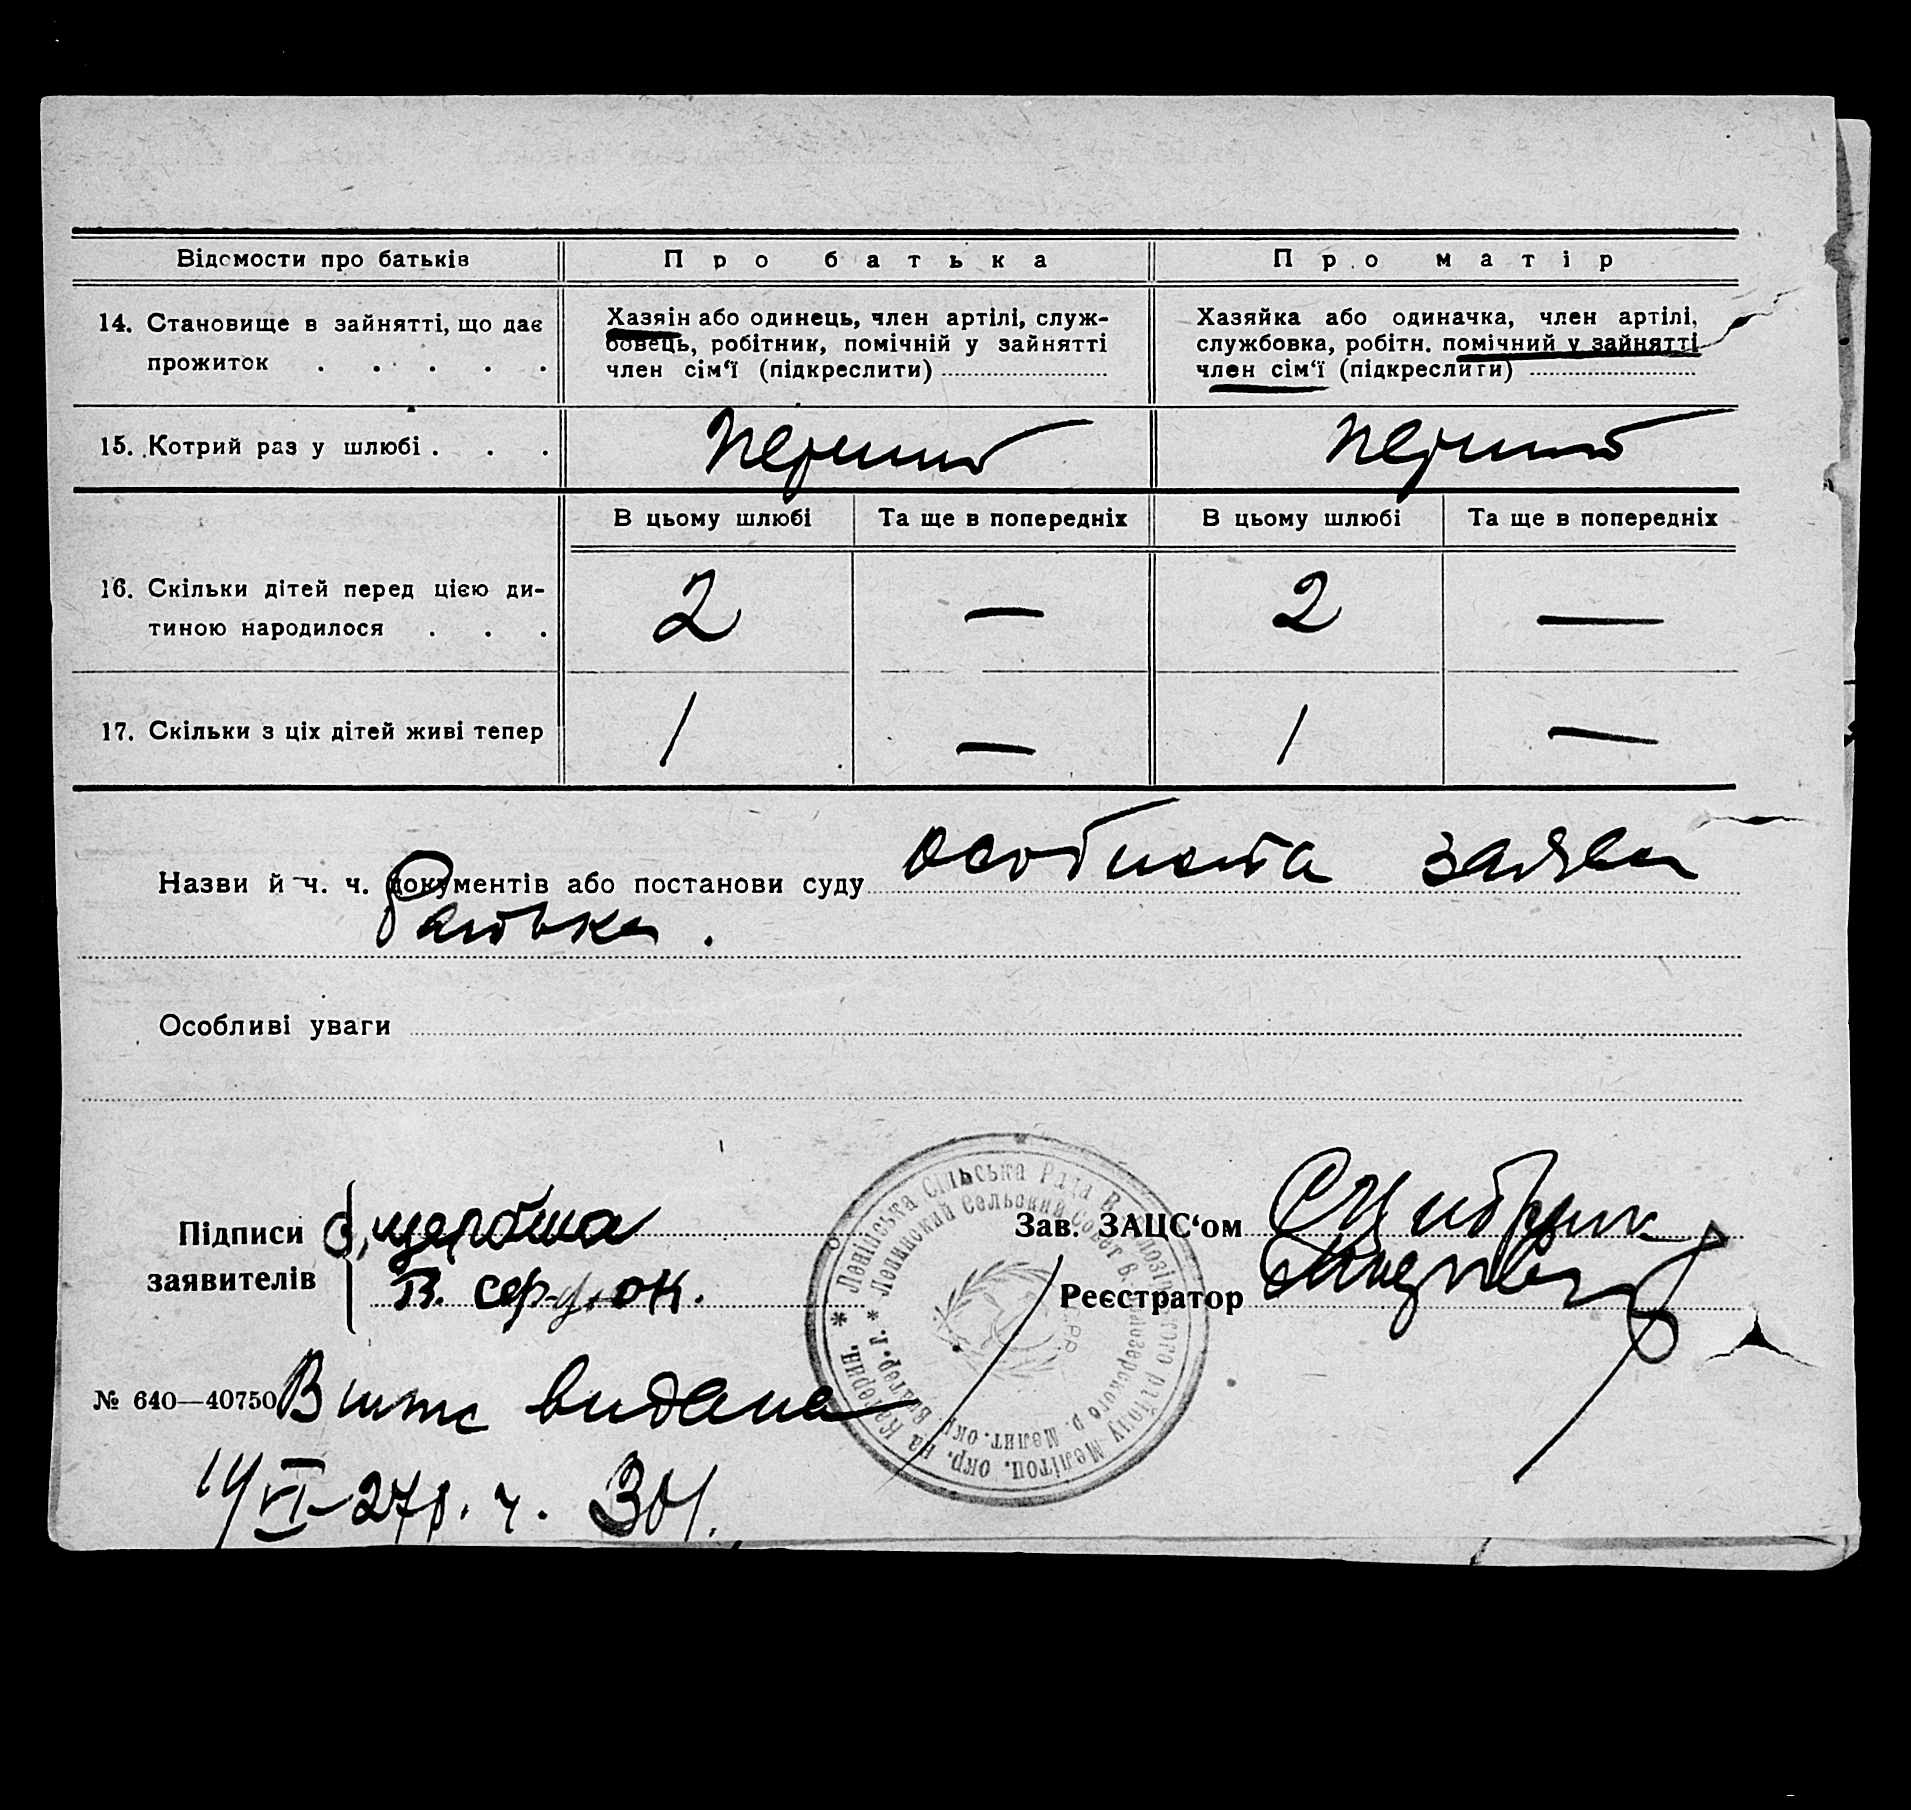 Відомости про батьків
Про батька
Про матір
14. Становище в зайнятті, що дає
прожиток . . . . .
Хазяін або одинець, член артілі, служ-
бовець, робітник, помічній у зайнятті
член сім‘ї (підкреслити)
Хазяйка або одиначка, член артілі,
службовка, робітн. помічний у зайнятті
член сім‘ї (підкреслити)
15. Котрий раз у шлюбі . . .
перший
перший
В цьому шлюбі
Та ще в попередніх
В цьому шлюбі
Та ще в попередніх
16. Скільки дітей перед цією ди-
тиною народилося . . .
2 — 2 —
17. Скільки з ціх дітей живі тепер
1 — 1 —
Назви й ч. ч. документів або постанови суду особиста заява
батька.
Особливі уваги
Підписи
заявителів
В. сердюк.
Зав. ЗАЦС‘ом
Реєстратор
Ленінська Сільська Рада В. Білозірського району Мелітоп. окр. на Катерин.
Ленинский Сельский Совет В. Білозерского р. Мелит. окр.
№ 640—40750
видана
14/VI-27р. ч.